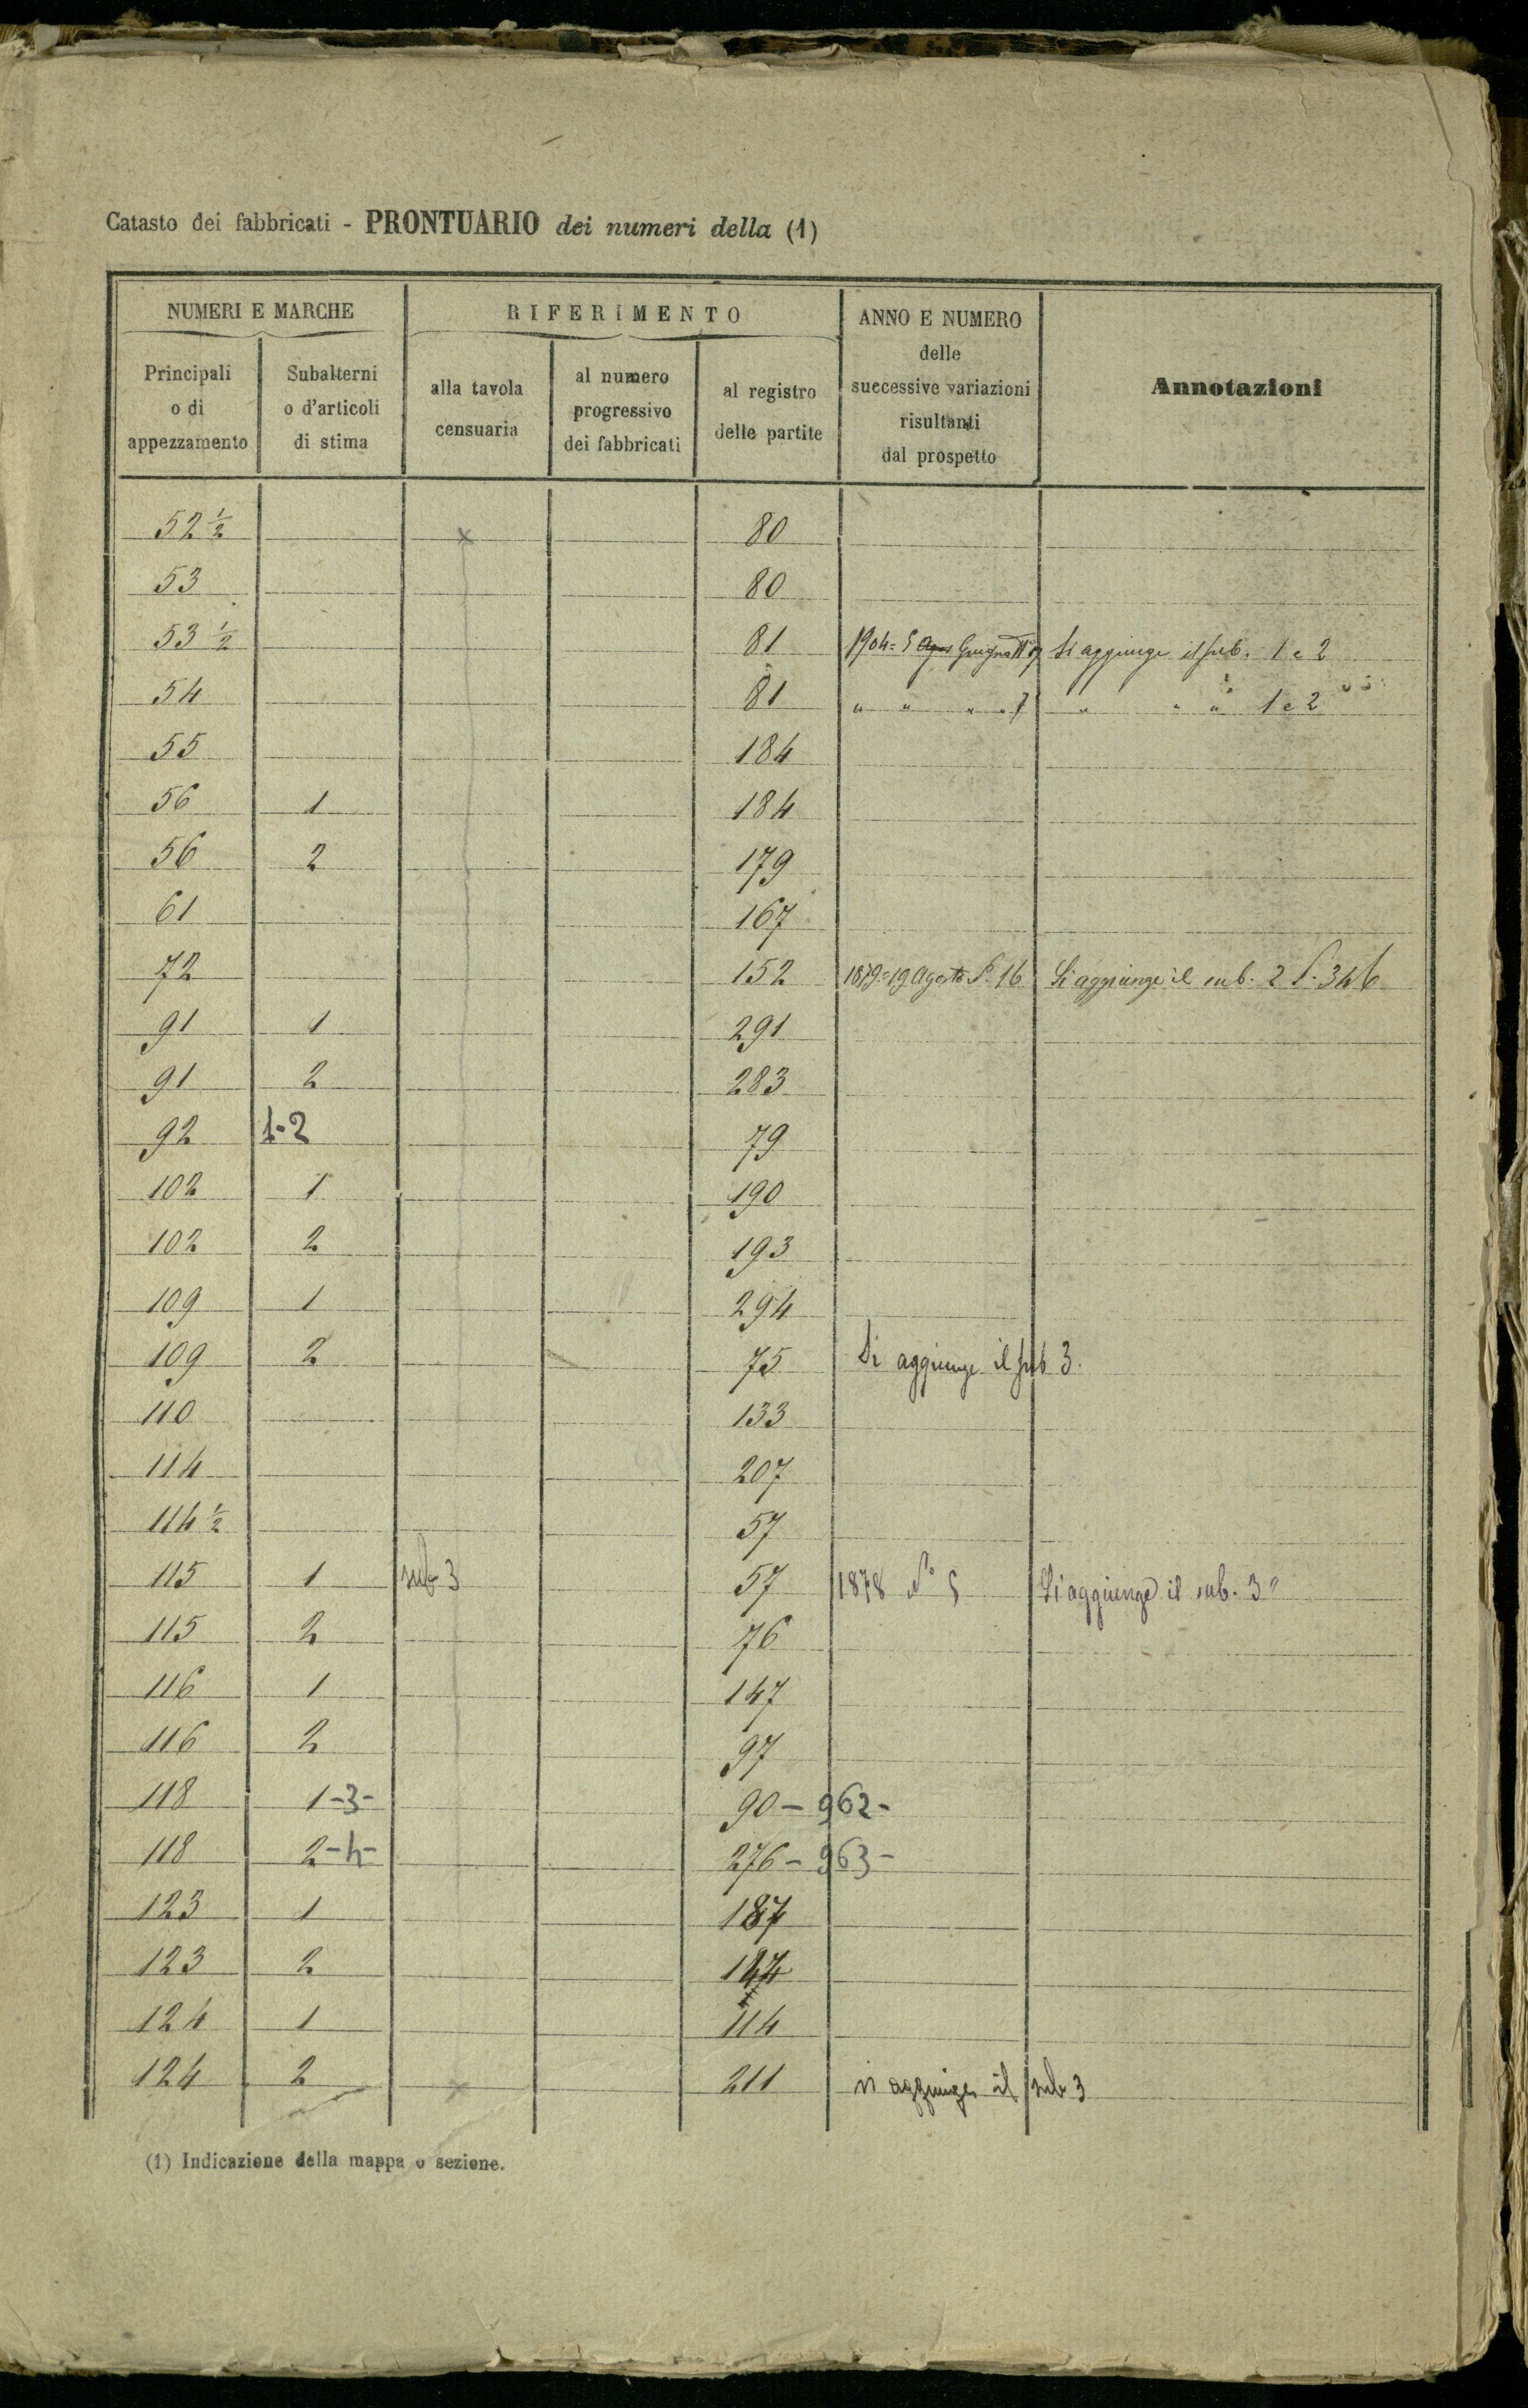 Catasto dei fabbricati - PRONTUARIO dei numeri della (1)
NUMERI E MARCHE
RIFERIMENTO
ANNO E NUMERO
delle
successive variazioni
risultanti
dal prospetto
Annotazioni
Principali
o di
appezzamento
Subalterni
o d'articoli
di stima
alla tavola
censuaria
al numero
progressivo
dei fabbricati
al registro
delle partite
52 1/2 x 80
53 80
53 1/2 81 1904 = 5 Giugno Si aggiunge il sub. 1 e 2
54 81 " " " " 7 " " " 1 e 2
55 184
56 1 184
56 2 179
61 167
72 152 1879 = 19 Agosto N. 16 Si aggiunge il sub. 2 P. 346
91 1 291
91 2 283
92 1-2 79
102 1 190
102 2 193
109 1 294
109 2 75 Si aggiunge il sub 3.
110 133
114 207
114 1/2 57
115 1 sub 3 57 1878 N° 5 Si aggiunge il sub. 3"
115 2 76
116 1 147
116 2 97
118 1-3- 90 - 962 -
118 2-4- 276 - 963 -
123 1 187
123 2
124 1 114
124 2 x 211 si aggiunge il sub 3
(1) Indicazione della mappa o sezione.